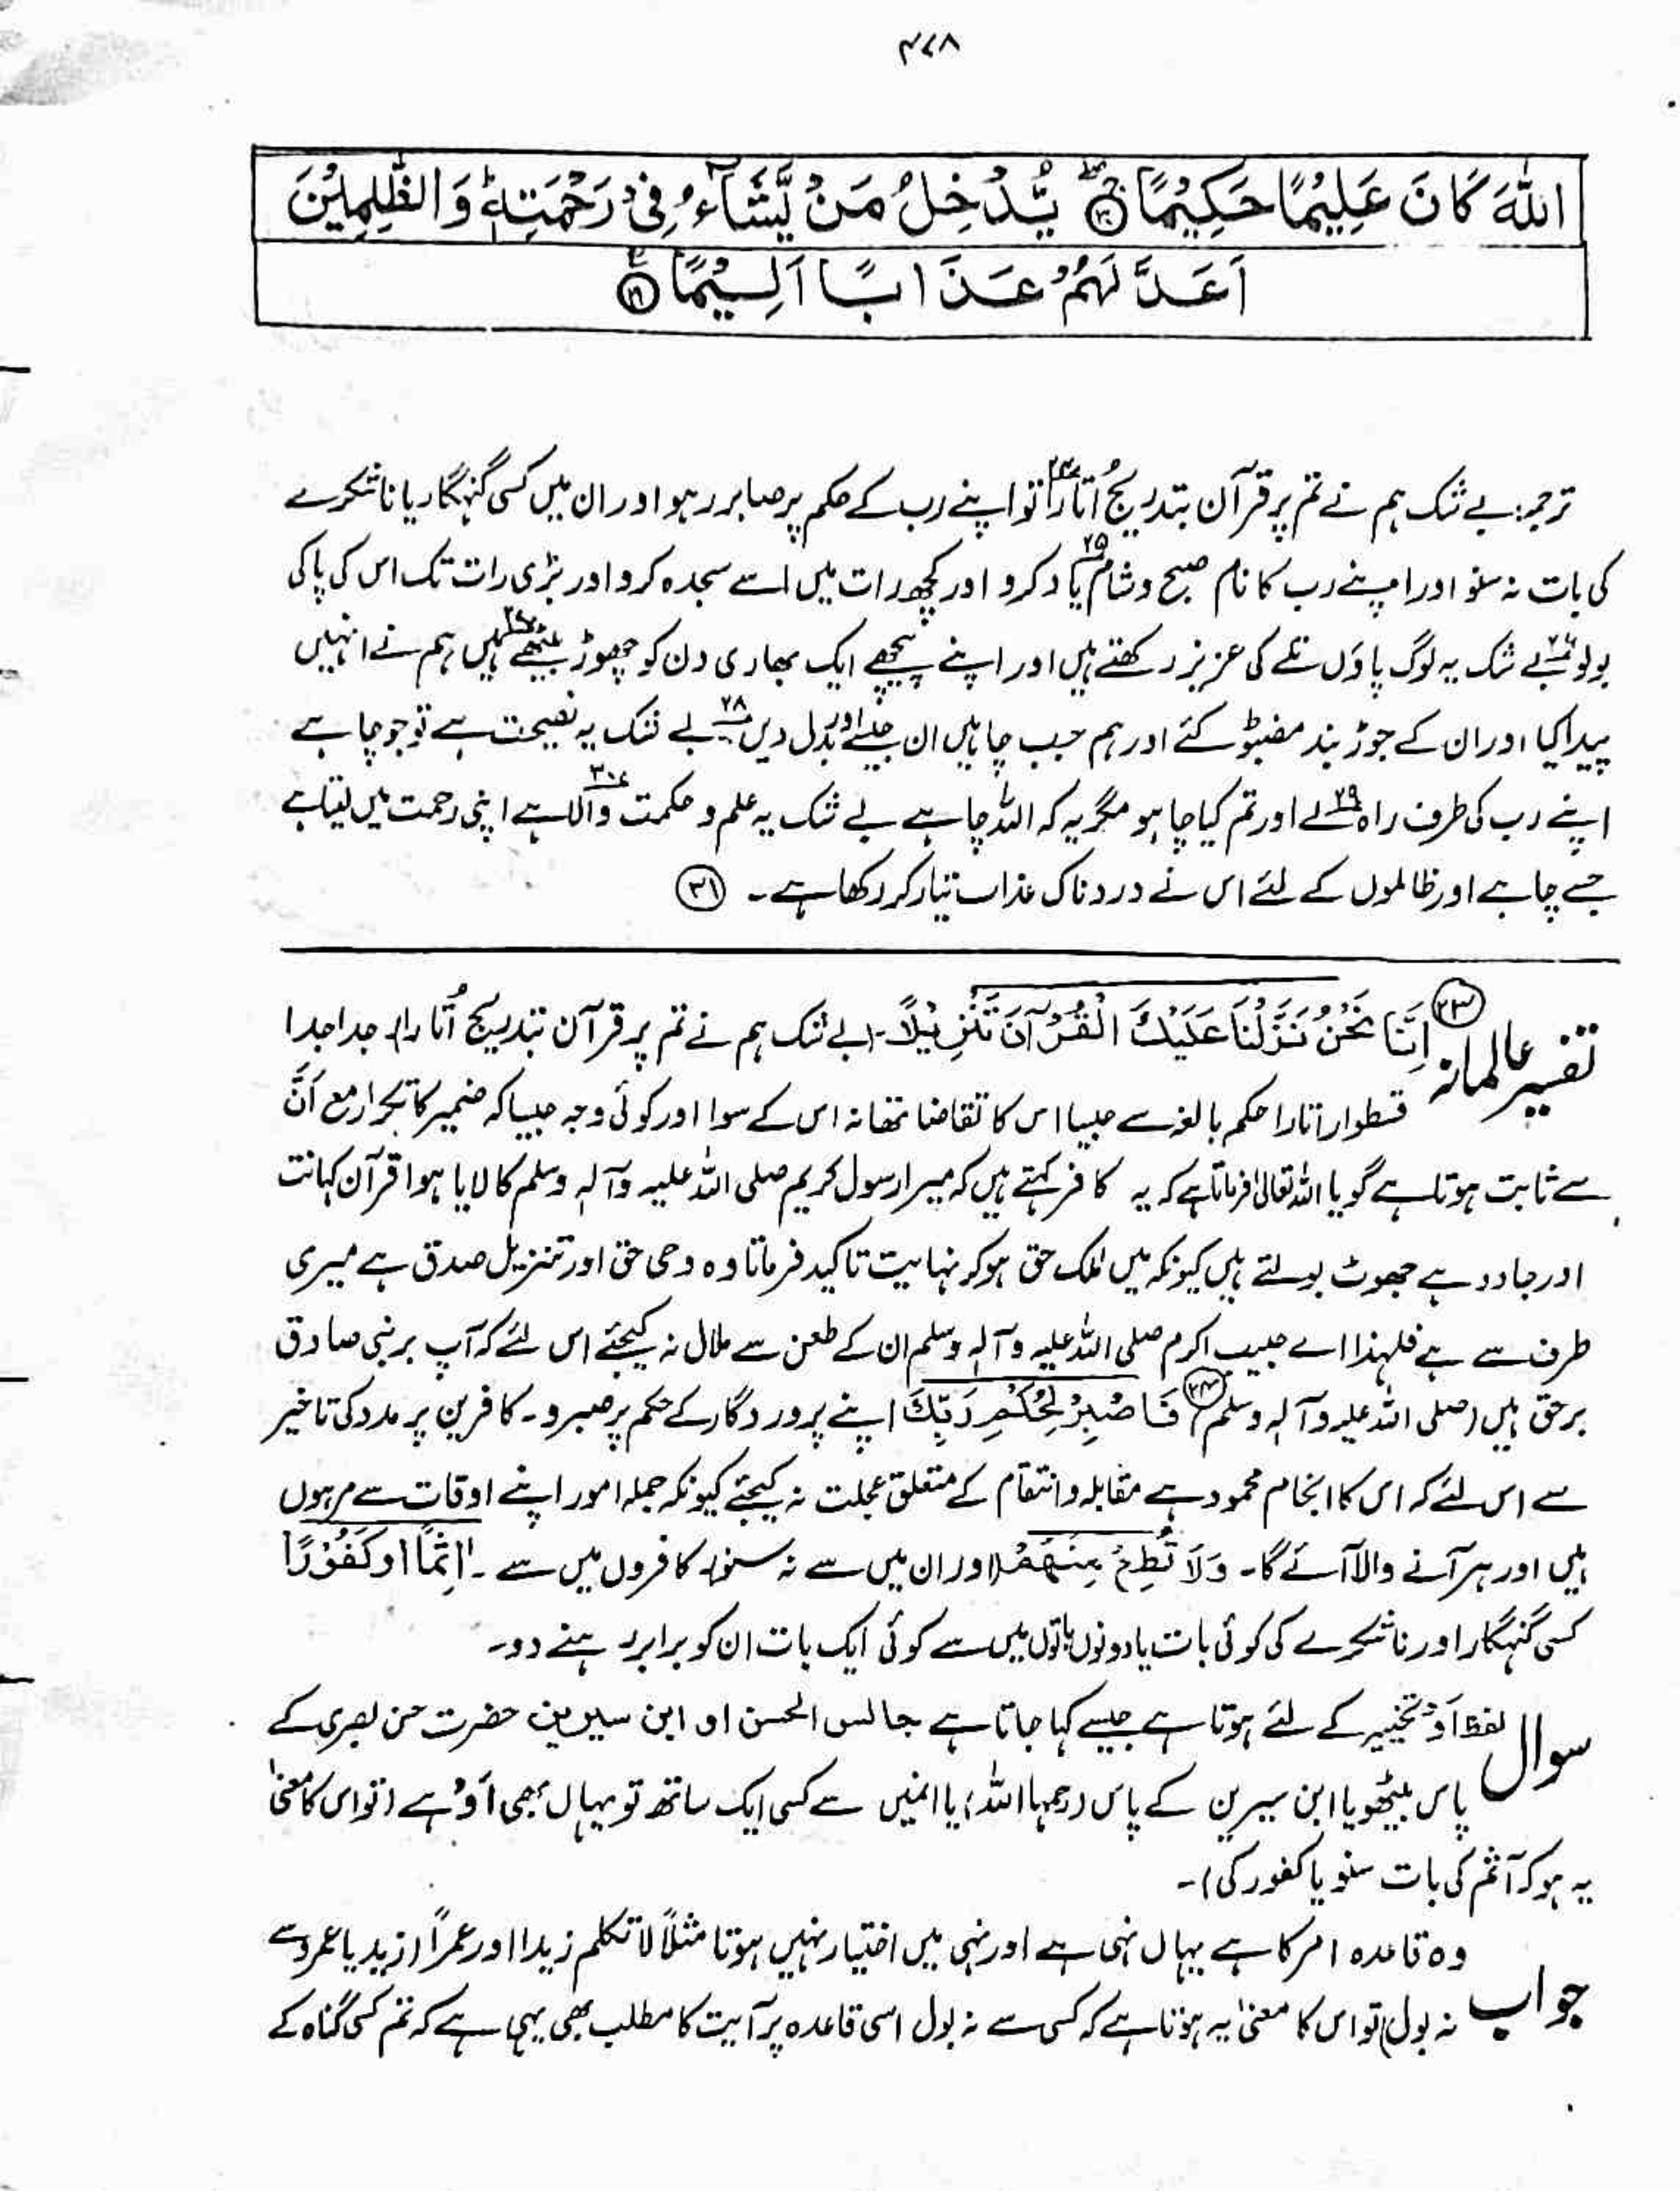 ۴۷۸
اللّٰهَ كَانَ عَلِيْمًا حَكِيْمًا ﴿۳۰﴾ يُّدْخِلُ مَنْ يَّشَآءُ فِيْ رَحْمَتِهٖ ؕ وَالظّٰلِمِيْنَ
اَعَدَّ لَهُمْ عَذَابًا اَلِيْمًا ﴿۳۱﴾
ترجمہ: بے شک ہم نے تم پر قرآن بتدریج اُتارا ۲۳ تو اپنے رب کے حکم پر صابر رہو اور ان میں کسی گنہگار یا ناشکرے
کی بات نہ سنو اور اپنے رب کا نام صبح و شام ۲۵ یاد کرو اور کچھ رات میں اسے سجدہ کرو اور بڑی رات تک اس کی پاکی
بولو ۲۶ بے شک یہ لوگ پاؤں تلے کی عزیز رکھتے ہیں اور اپنے پیچھے ایک بھاری دن کو چھوڑ بیٹھے ۲۷ ہیں ہم نے انہیں
پیدا کیا اور ان کے جوڑ بند مضبوط کئے اور ہم جب چاہیں ان جیسے اور بدل دیں ۲۸ بے شک یہ نصیحت ہے تو جو چاہے
اپنے رب کی طرف راہ ۲۹ لے اور تم کیا چاہو مگر یہ کہ اللہ چاہے بے شک یہ علم و حکمت والا ۳۰ ہے اپنی رحمت میں لیتا ہے
جسے چاہے اور ظالموں کے لئے اس نے دردناک عذاب تیار کر رکھا ہے۔ ۳۱
تفسیر عالمانہ ۲۳ اِنَّا نَحْنُ نَزَّلْنَا عَلَيْكَ الْقُرْآنَ تَنْزِيْلًا۔ (بے شک ہم نے تم پر قرآن بتدریج اُتارا) جدا جدا
قسطوار اتارا حکم بالغہ سے جیسا اس کا تقاضا تھا نہ اس کے سوا اور کوئی وجہ جیسا کہ ضمیر کا تکرار مع اَنَّ
سے ثابت ہوتا ہے گویا اللہ تعالیٰ فرماتا ہے کہ یہ کافر کہتے ہیں کہ میرا رسول کریم صلی اللہ علیہ وآلہ وسلم کا لایا ہوا قرآن کہانت
اور جادو ہے جھوٹ بولتے ہیں کیونکہ میں ملک حق ہو کر نہایت تاکید فرماتا وہ وحی حق اور تنزیل صدق ہے میری
طرف سے ہے فلہذا اے حبیب اکرم صلی اللہ علیہ وآلہ وسلم ان کے طعن سے ملال نہ کیجئے اس لئے کہ آپ برنبی صادق
برحق ہیں (صلی اللہ علیہ وآلہ وسلم) ۲۴ فَاصْبِرْ لِحُكْمِ رَبِّكَ اپنے پروردگار کے حکم پر صبرو۔ کافرین پر مدد کی تاخیر
سے اس لئے کہ اس کا انجام محمود ہے مقابلہ و انتقام کے متعلق عجلت نہ کیجئے کیونکہ جملہ امور اپنے اوقات سے مرہوں
ہیں اور ہر آنے والا آئے گا۔ وَلَا تُطِعْ مِنْهُمْ (اور ان میں سے نہ سنو) کافروں میں سے۔ اٰثِمًا اَوْ كَفُوْرًا
کسی گنہگار اور ناشکرے کی کوئی بات یا دونوں باتوں میں سے کوئی ایک بات ان کو برابر رہنے دو۔
سوال لفظ اَوْ تخییر کے لئے ہوتا ہے جیسے کہا جاتا ہے جالس الحسن او ابن سیرین حضرت حسن بصری کے
پاس بیٹھو یا ابن سیرین کے پاس (رحمہما اللہ) یا انہیں سے کسی ایک ساتھ تو یہاں بھی اَوْ ہے (تو اس کا معنیٰ
یہ ہو کہ آثم کی بات سنو یا کفور کی)۔
جواب وہ قاعدہ امر کا ہے یہاں نہی ہے اور نہی میں اختیار نہیں ہوتا مثلاً لا تکلم زیدا اور عمراً (زید یا عمرو سے
نہ بول) تو اس کا معنیٰ یہ ہوتا ہے کہ کسی سے نہ بول اسی قاعدہ پر آیت کا مطلب بھی یہی ہے کہ تم کسی گناہ کے